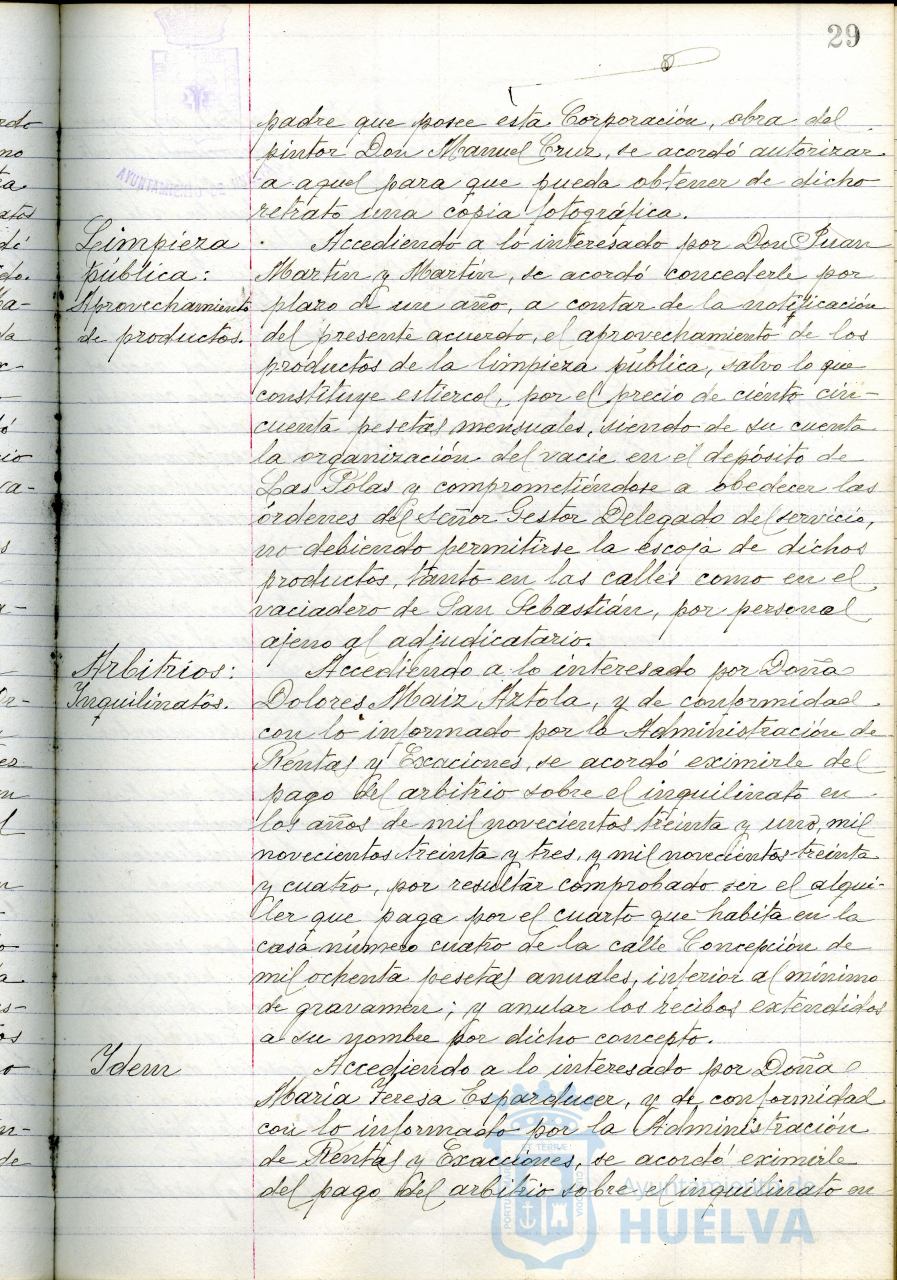 29
padre que posee esta Corporación, obra del
pintor Don Manuel Cruz, se acordó autorizar
a aquel para que pueda obtener de dicho
retrato una copia fotográfica.
Limpieza
pública:
Aprovechamiento
de productos.
Accediendo a lo interesado por Don Juan
Martín y Martín, se acordó concederle por
plazo de un año, a contar de la notificación
del presente acuerdo, el aprovechamiento de los
productos de la limpieza pública, salvo lo que
constituye estiercol, por el precio de ciento cin-
cuenta pesetas mensuales, siendo de su cuenta
la organización del vacie en el depósito de
Las Polas y comprometiéndose a obedecer las
órdenes del Señor Gestor Delegado del servicio,
no debiendo permitirse la escoja de dichos
productos, tanto en las calles como en el
vaciadero de San Sebastián, por personal
ajeno al adjudicatario.
Arbitrios:
Inquilinatos.
Accediendo a lo interesado por Doña
Dolores Maiz Aztola, y de conformidad
con lo informado por la Administración de
Rentas y Exaciones, se acordó eximirle del
pago del arbitrio sobre el inquilinato en
los años de mil novecientos treinta y uno, mil
novecientos treinta y tres, y mil novecientos treinta
y cuatro, por resultar comprobado ser el alqui-
ler que paga por el cuarto que habita en la
casa número cuatro de la calle Concepción de
mil ochenta pesetas anuales, inferior al mínimo
de gravamen; y anular los recibos extendidos
a su nombre por dicho concepto.
Idem
Accediendo a lo interesado por Doña
María Teresa Esparducer, y de conformidad
con lo informado por la Administración
de Rentas y Exacciones, se acordó eximirle
del pago del arbitrio sobre el inquilinato en
Ayuntamiento de
HUELVA